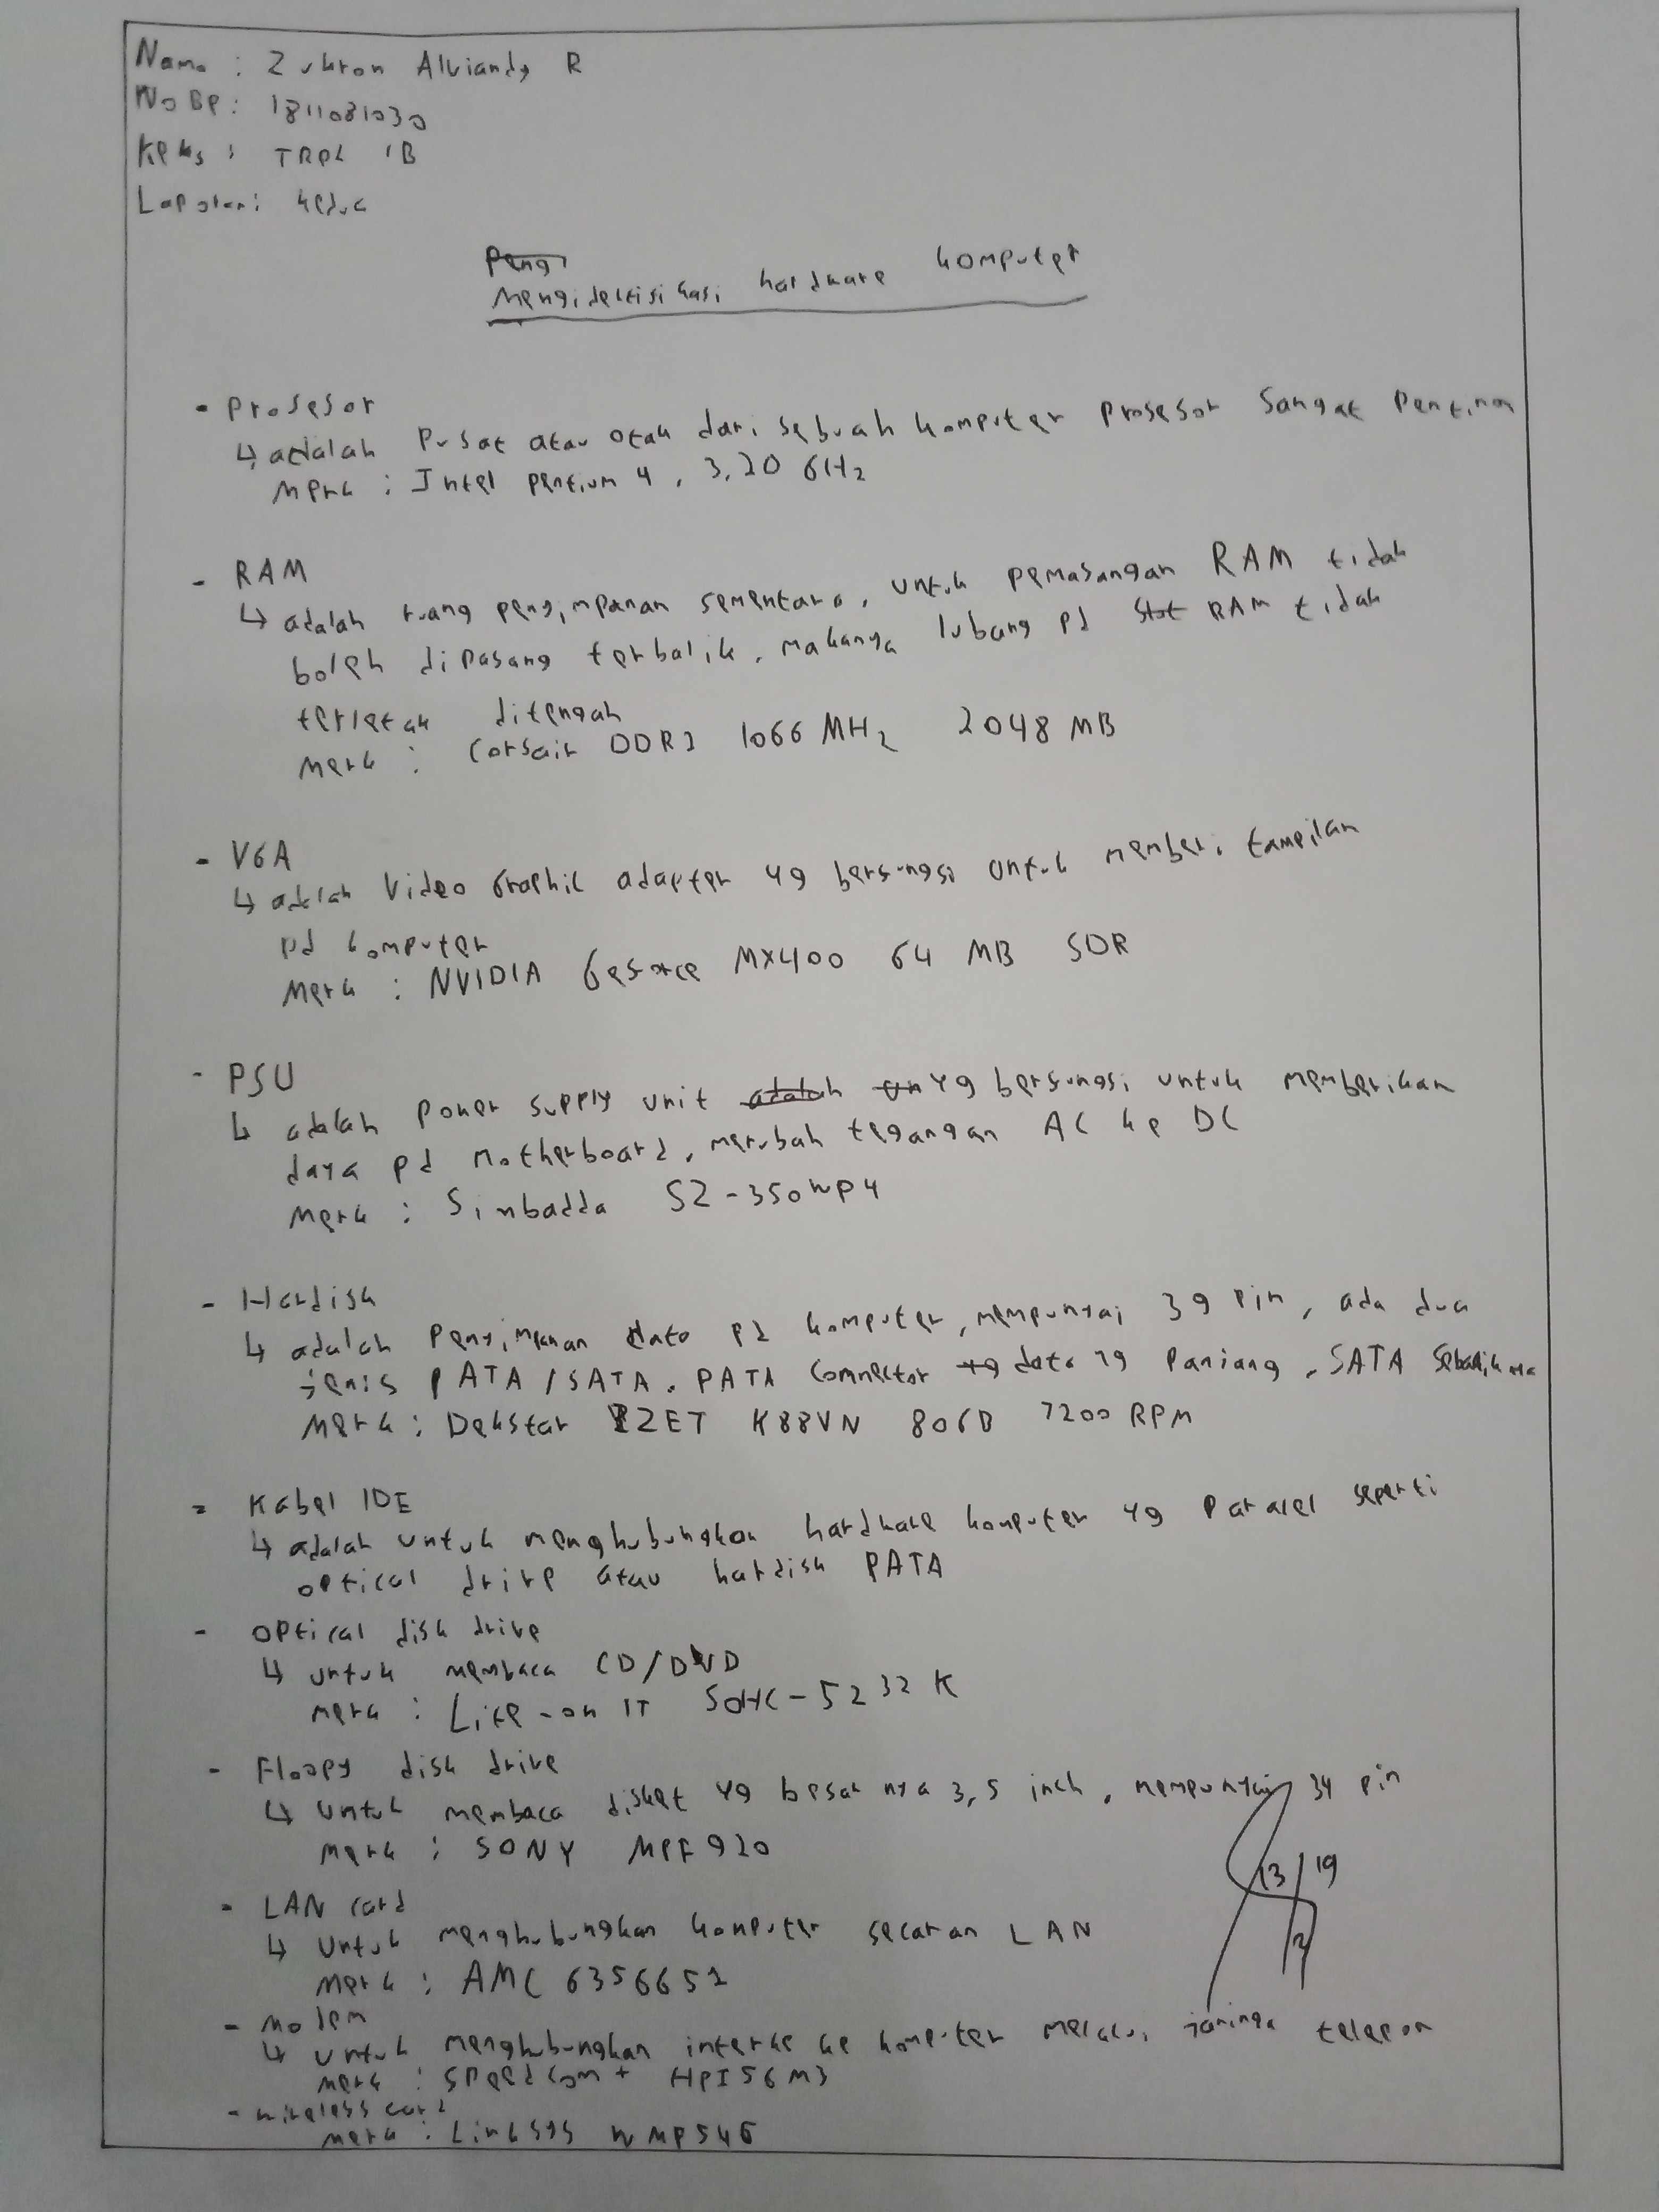 Nama : Zukron Alviandy R
No BP : 1811081030
Kelas : TRPL 1B
Laporan : kedua
Peng
Mengidektisikasi hardware komputer
- Prosesor
↳ adalah Pusat atau otak dari sebuah komputer prosesor sangat penting
Merk : Intel pentium 4, 3,20 GHz
- RAM
↳ adalah ruang penyimpanan sementara, untuk pemasangan RAM tidak
boleh dipasang terbalik, makanya lubang pd slot RAM tidak
terletak ditengah
Merk : Corsair DDR2 1066 MHz 2048 MB
- VGA
↳ adalah Video Graphic adapter yg berfungsi untuk memberi tampilan
pd komputer
Merk : NVIDIA Geforce MX400 64 MB SDR
- PSU
↳ adalah Power supply unit adalah un yg berfungsi untuk memberikan
daya pd Motherboard, merubah tegangan AC ke DC
Merk : Simbadda SZ-350WP4
- Hardisk
↳ adalah Penyimpanan data pd komputer, mempunyai 39 pin, ada dua
jenis PATA / SATA. PATA Connector yg data yg Panjang, SATA sebaliknya
Merk : Dekstar ZET K88VN 80GB 7200 RPM
- Kabel IDE
↳ adalah untuk menghubungkan hardware komputer yg Pararel seperti
optical drive atau hardisk PATA
- Optical disk drive
↳ untuk membaca CD/DVD
Merk : Lite-on IT SOHC-5232K
- Floopy disk drive
↳ untuk membaca disket yg besar nya 3,5 inch, mempunyai 34 pin
Merk : SONY MPF920
- LAN card
↳ Untuk menghubungkan komputer secaran LAN
Merk : AMC 6356651
13/2 19
- Modem
↳ untuk menghubungkan ke komputer melalui jaringa telepon
Merk : Speedcom+ HPI56M3
- wireless card
Merk : Linksys WMP54G